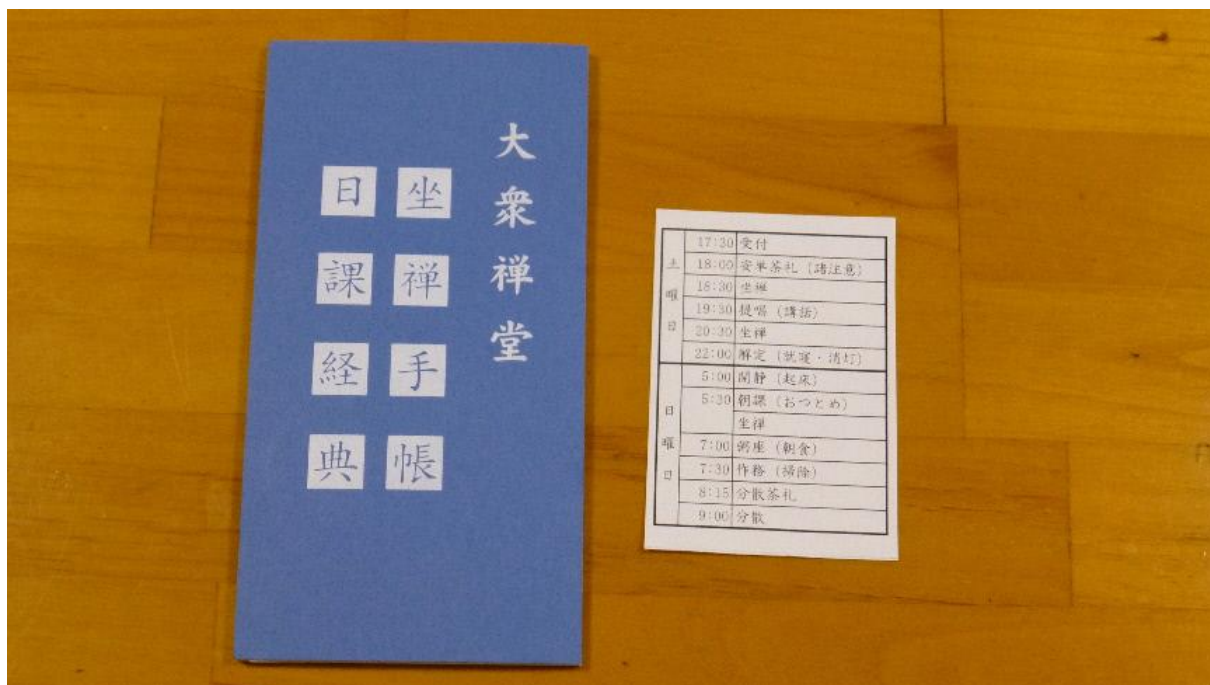 大衆禅堂
坐禅手帳
日課経典
土曜日
17:30 受付
18:00 安単茶礼（諸注意）
18:30 坐禅
19:30 提唱（講話）
20:30 坐禅
22:00 解定（就寝・消灯）
日曜日
5:00 開静（起床）
5:20 朝課（おつとめ）
坐禅
7:00 粥座（朝食）
7:30 作務（掃除）
8:15 分散茶礼
9:00 分散